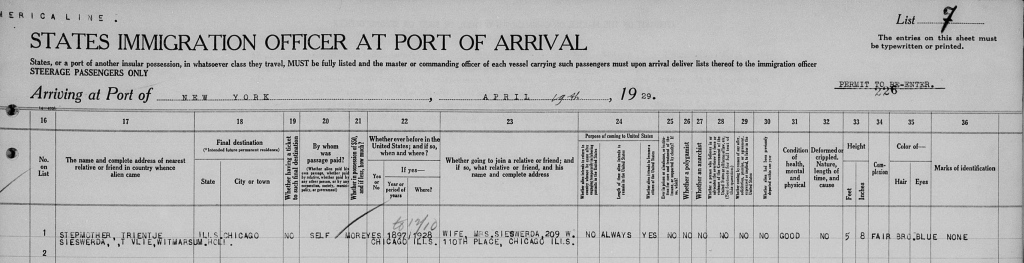 MERICA LINE.
List 7
The entries on this sheet must
be typewritten or printed.
STATES IMMIGRATION OFFICER AT PORT OF ARRIVAL
States, or a port of another insular possession, in whatsoever class they travel, MUST be fully listed and the master or commanding officer of each vessel carrying such passengers must upon arrival deliver lists thereof to the immigration officer
STEERAGE PASSENGERS ONLY
PERMIT TO RE-ENTER.
226
Arriving at Port of NEW YORK, APRIL 19th, 1929.
16 17 18 19 20 21 22 23 24 25 26 27 28 29 30 31 32 33 34 35 36
No. on List
The name and complete address of nearest relative or friend in country whence alien came
Final destination
(*Intended future permanent residence)
State
City or town
Whether having a ticket to such final destination
By whom was passage paid?
Whether ever before in the United States; and if so, when and where?
Yes or No
If yes—
Year or period of years
Where?
Whether going to join a relative or friend; and if so, what relative or friend, and his name and complete address
Purpose of coming to United States
Whether a polygamist
Whether an anarchist
Condition of health, mental and physical
Deformed or crippled. Nature, length of time, and cause
Height
Feet
Inches
Complexion
Color of—
Hair
Eyes
Marks of identification
to 12/10
1 STEPMOTHER, TRIENTJE ILLS. CHICAGO NO SELF MORE YES 1897/1928 WIFE, MRS. SIESWERDA, 209 W. NO ALWAYS YES NO NO NO NO NO NO GOOD NO 5 8 FAIR BRO. BLUE NONE
SIESWERDA, T VLIE, WITMARSUM. HOLL. CHICAGO ILLS. 110TH PLACE, CHICAGO ILLS.
2